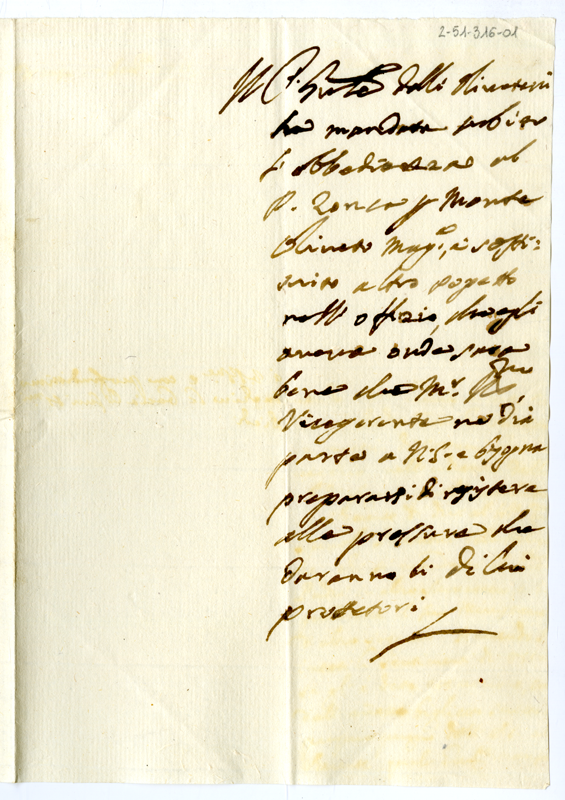 2-51-316-01
Il P. Gnle delli Olivetani
ha mandata subito
l'obbedienza al
P. Zonca p Monte
Oliveto Magre, e sosti=
tuito altro sogetto
nell'offizio, ch'egli
aveva onde sarà
bene che Mr.
Vicegerente ne dia
parte a N. S. e bisogna
prepararsi di resistere
alle pressure che
daranno li di lui
protettori